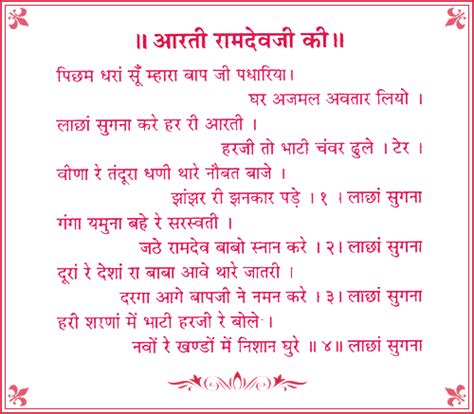 ॥ आरती रामदेवजी की॥
पिछम धरां सूँ म्हारा बाप जी पधारिया।
घर अजमल अवतार लियो ।
लाछां सुगना करे हर री आरती ।
हरजी तो भाटी चंवर ढुले । टेर ।
वीणा रे तंदूरा धणी थारे नौबत बाजे ।
झांझर री झनकार पड़े । १ । लाछां सुगना
गंगा यमुना बहे रे सरस्वती ।
जठे रामदेव बाबो स्नान करे । २। लाछां सुगना
दूरां रे देशां रा बाबा आवे थारे जातरी ।
दरगा आगे बापजी ने नमन करे । ३। लाछां सुगना
हरी शरणां में भाटी हरजी रे बोले ।
नवों रे खण्डों में निशान घुरे ॥ ४॥ लाछां सुगना